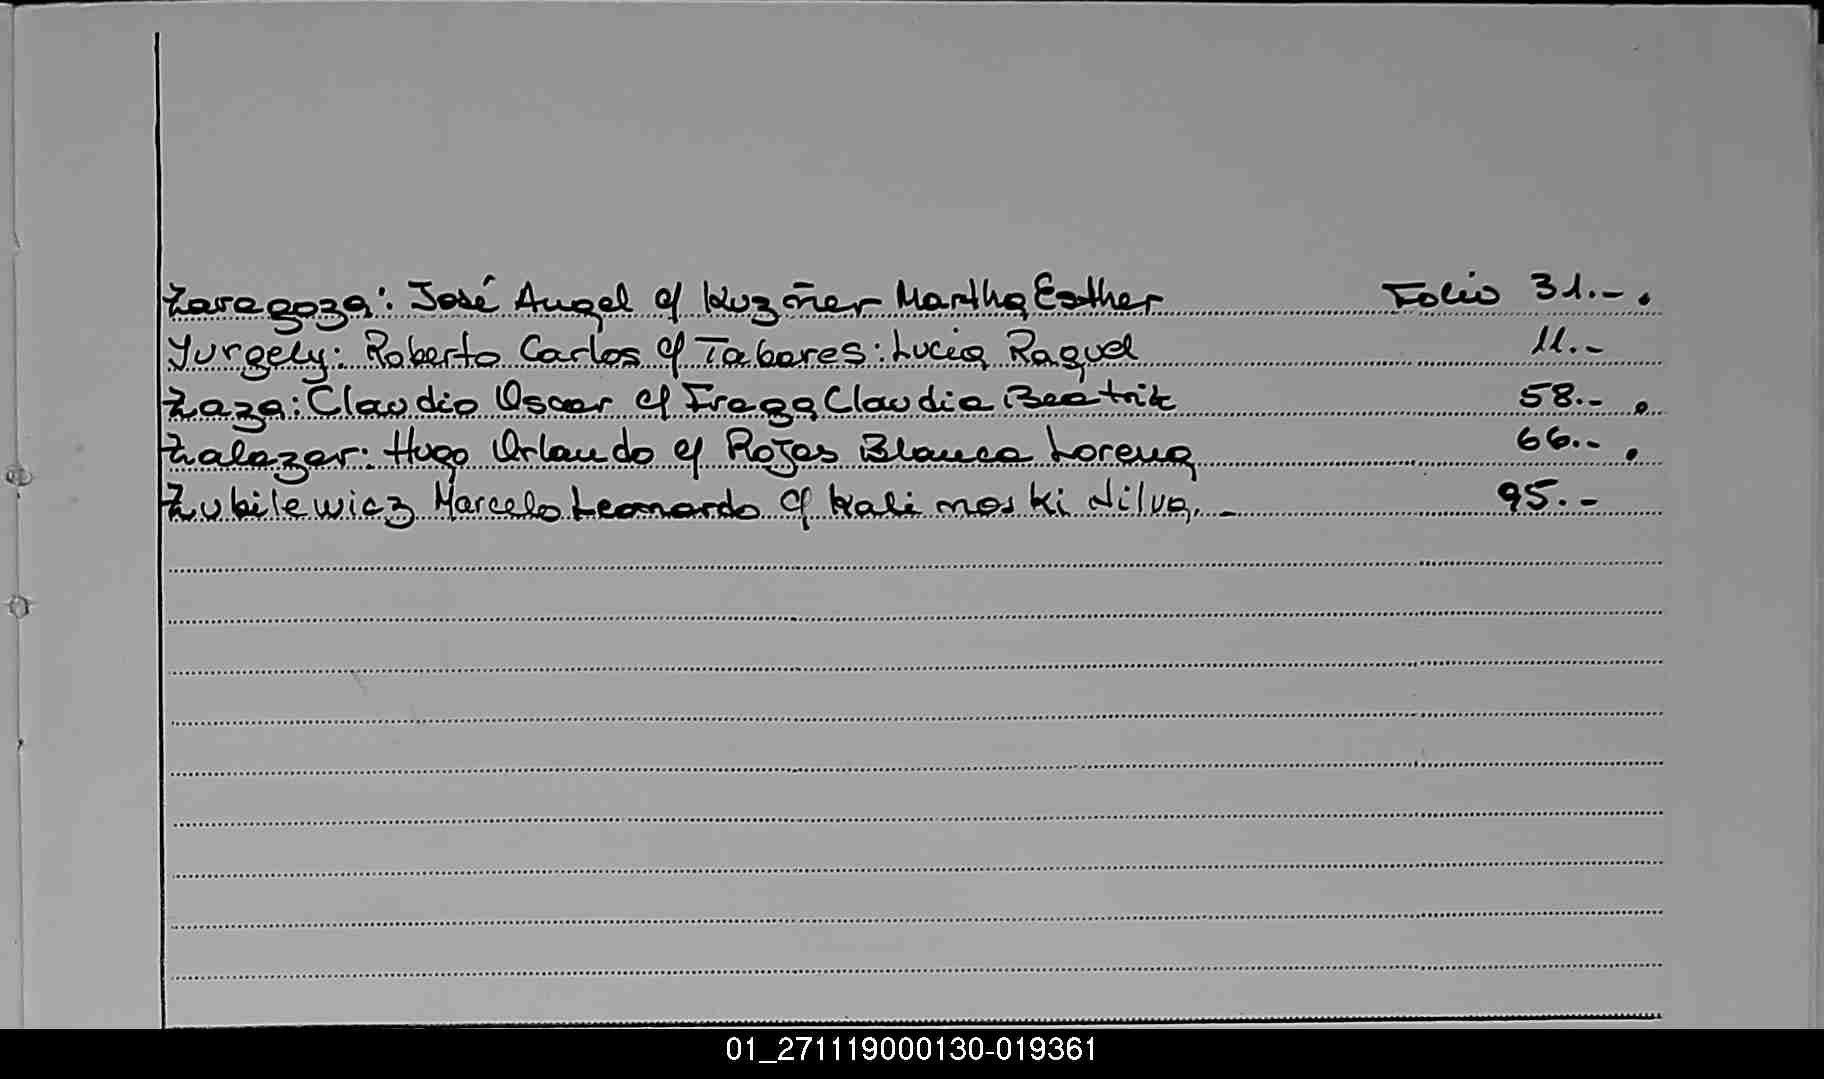 Zaragoza: José Angel c/ Kuzmer Martha Esther Folio 31.-.
Yurgely: Roberto Carlos c/ Tabares: Lucia Raquel 11.-
Zaza: Claudio Oscar c/ Fraga Claudia Beatriz 58.-.
Zalazar: Hugo Orlando c/ Rojas Blanca Lorena 66.-.
Zubilewicz Marcelo Leonardo c/ Kalimoski Nilva.- 95.-
01_271119000130-019361